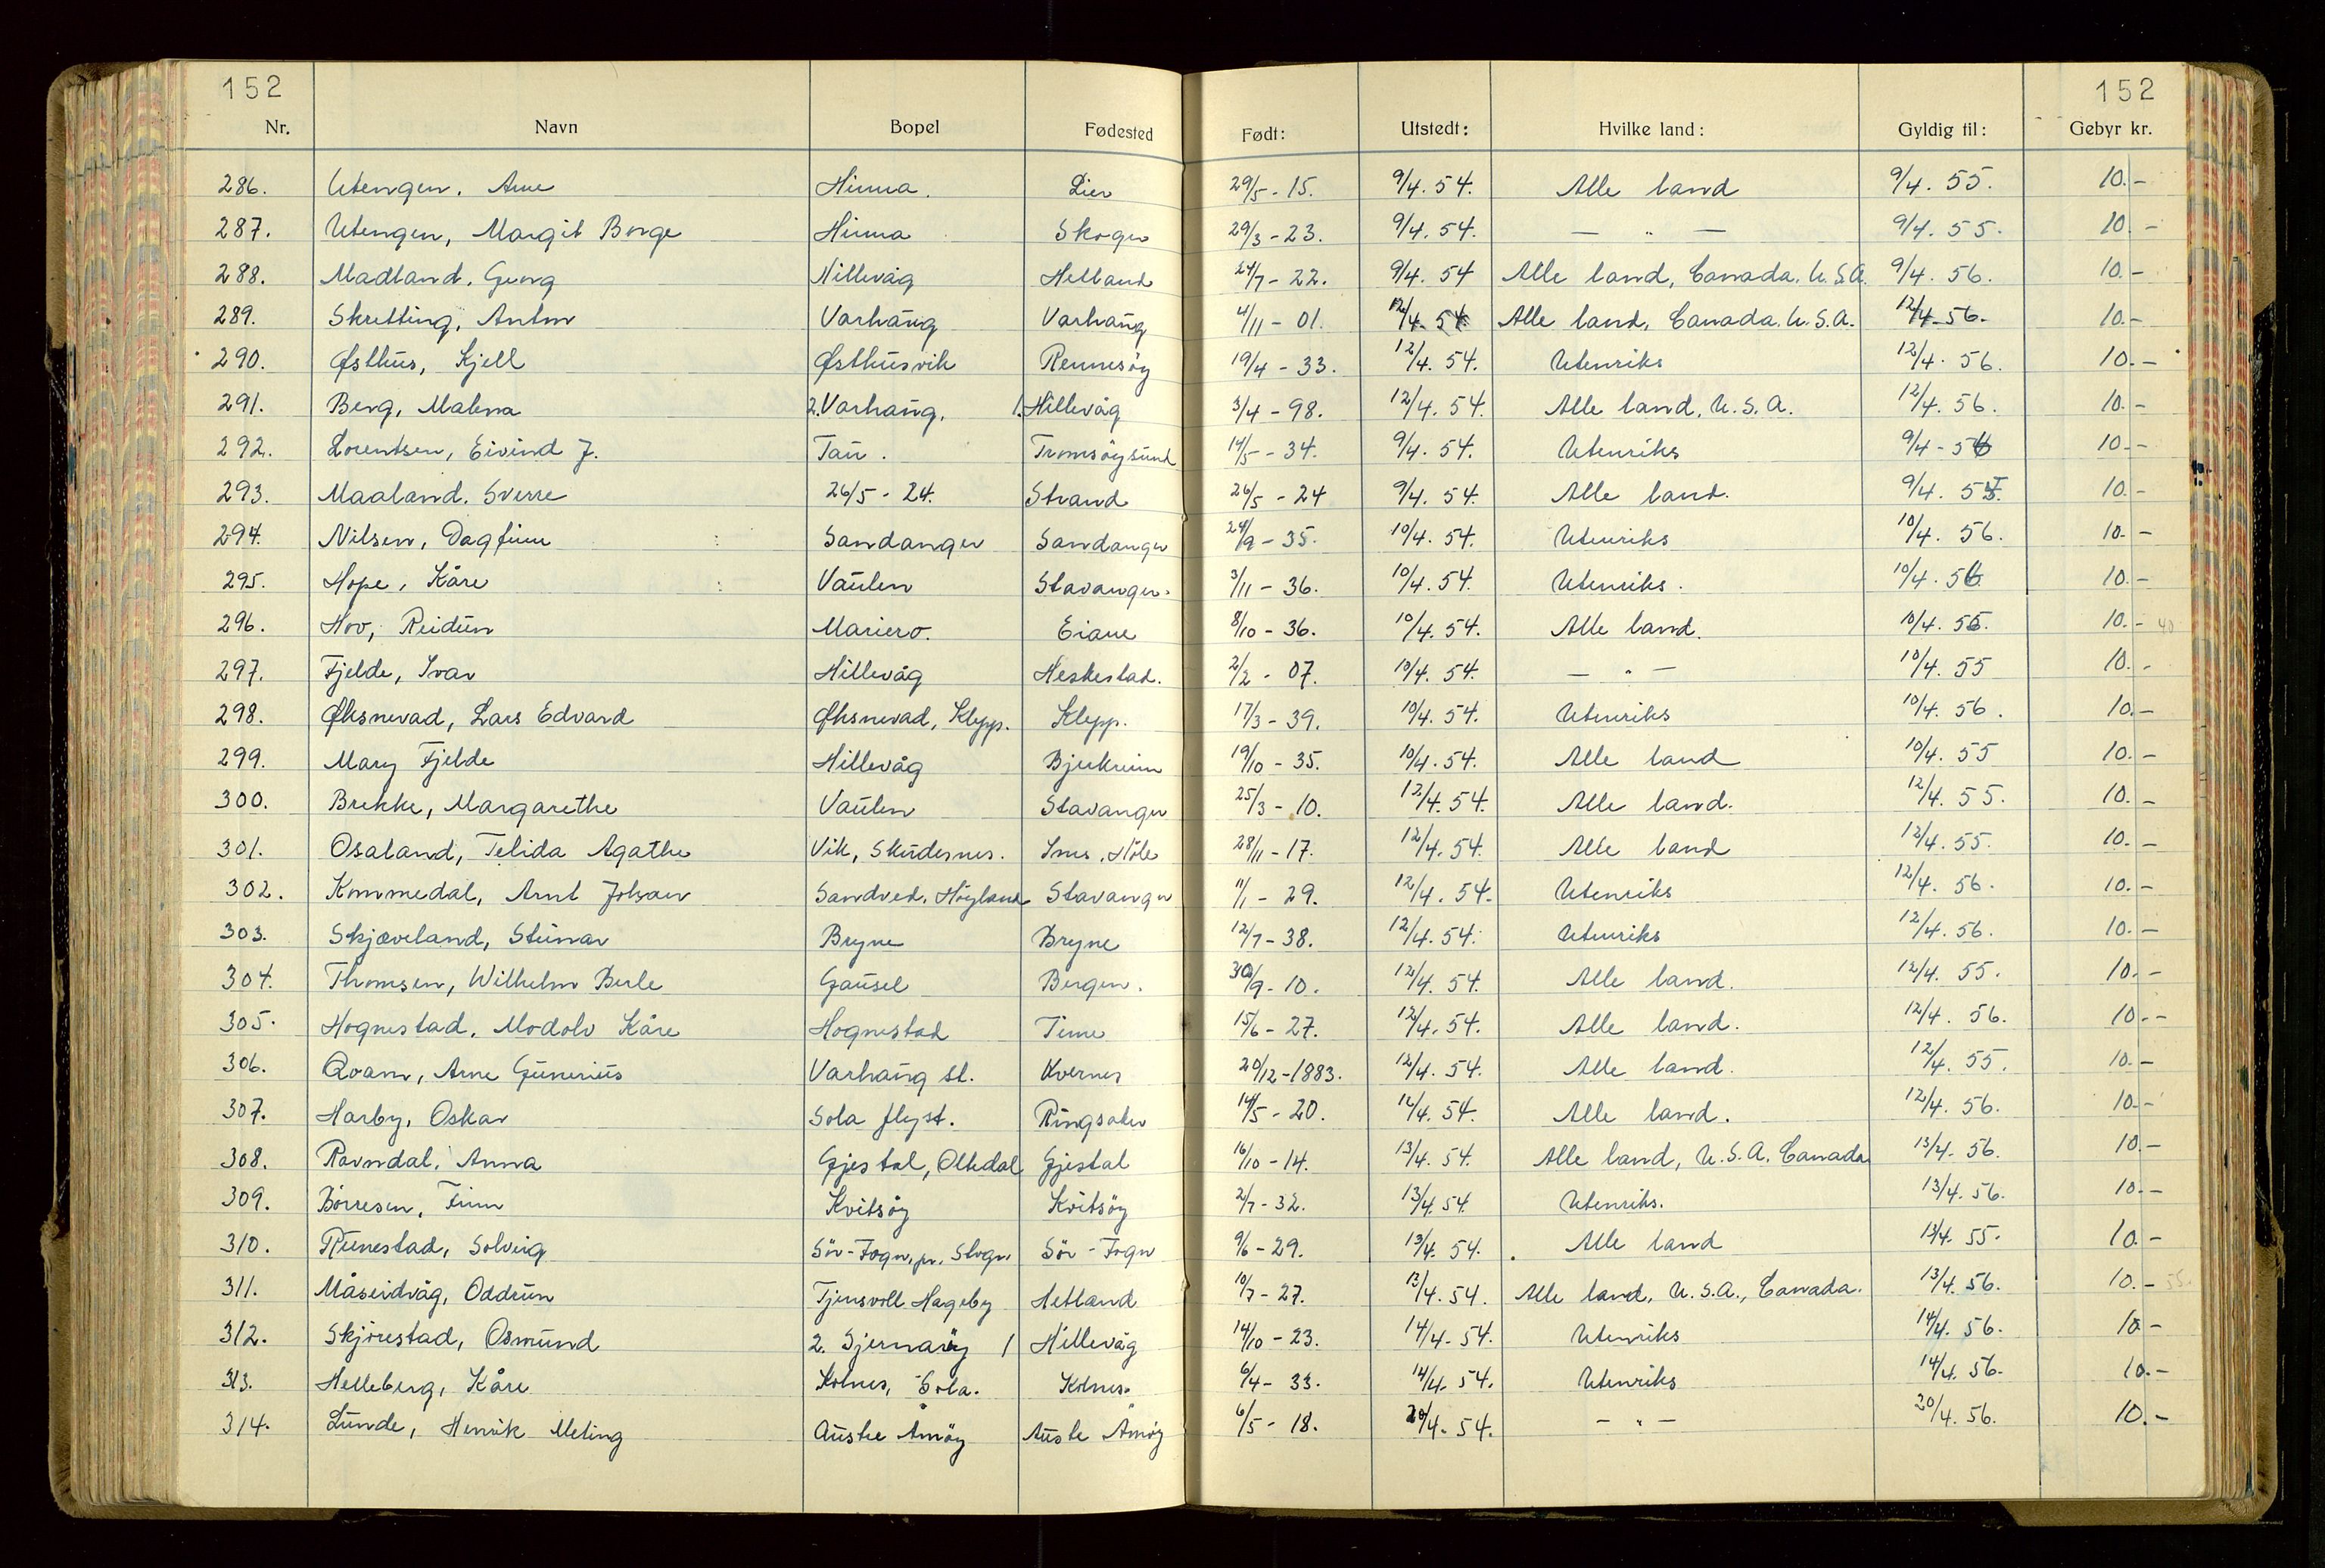 152 152
Nr. Navn Bopel Fødested Født: Utstedt: Hvilke land: Gyldig til: Gebyr kr.
286. Utengen, Arne Hinna. Lier 29/5 - 15. 9/4. 54. Alle land 9/4. 55. 10.-
287. Utengen, Margit Borge Hinna Skoger 29/3 - 23. 9/4. 54. — " — 9/4. 55. 10.-
288. Madland, Georg Hillevåg Hetland 24/7 - 22. 9/4. 54 Alle land, Canada, U.S.A. 9/4. 56. 10.-
289. Skretting, Anton Varhaug Varhaug 4/11 - 01. 12/4. 54. Alle land, Canada, U.S.A. 12/4. 56. 10.-
290. Østhus, Kjell Østhusvik Rennesöy 19/4 - 33. 12/4. 54. Utenriks 12/4. 56. 10.-
291. Berg, Malena 2. Varhaug, 1. Hillevåg 3/4 - 98. 12/4. 54. Alle land, U.S.A. 12/4. 56. 10.-
292. Lorentsen, Eivind J. Tau. Tromsöysund 14/5 - 34. 9/4. 54. Utenriks 9/4 - 56 10.-
293. Maaland, Sverre 26/5 - 24. Strand 26/5 - 24 9/4. 54. Alle land. 9/4. 55. 10.-
294. Nilsen, Dagfinn Sandanger Sandanger 24/9 - 35. 10/4. 54. Utenriks 10/4. 56. 10.-
295. Hope, Kåre Vaulen Stavanger. 3/11 - 36. 10/4. 54. Utenriks. 10/4. 56. 10.-
296. Hov, Reidun Mariero. Eiane 8/10 - 36. 10/4. 54. Alle land. 10/4. 56. 10.- 40
297. Fjelde, Ivar Hillevåg Heskestad. 2/2 - 07. 10/4. 54. — " — 10/4. 55 10.-
298. Øksnevad, Lars Edvard Øksnevad, Klepp. Klepp. 17/3 - 39. 10/4. 54. Utenriks 10/4. 56. 10.-
299. Mary Fjelde Hillevåg Bjerkreim 19/10 - 35. 10/4. 54. Alle land 10/4. 55 10.-
300. Brekke, Margarethe Vaulen Stavanger 25/3 - 10. 12/4. 54. Alle land. 12/4. 55. 10.-
301. Osaland, Telida Agathe Vik, Skudesnes. Ims, Höle 28/11 - 17. 12/4. 54. Alle land 12/4. 55. 10.-
302. Kommedal, Arnt Johan Sandved, Höyland Stavanger 11/1 - 29. 12/4. 54. Utenriks 12/4. 56. 10.-
303. Skjæveland, Steinar Bryne Bryne 12/7 - 38. 12/4. 54. Utenriks 12/4. 56. 10.-
304. Thomsen, Wilhelm Berle Gausel Bergen. 30/9 - 10. 12/4. 54. Alle land. 12/4. 55. 10.-
305. Hognestad, Modolv Kåre Hognestad Time 15/6 - 27. 12/4. 54. Alle land. 12/4. 56. 10.-
306. Qvam, Arne Gunerius Varhaug st. Kvernes 20/12 - 1883. 12/4. 54. Alle land. 12/4. 55. 10.-
307. Harby, Oskar Sola flyst. Ringsaker 14/5 - 20. 12/4. 54. Alle land. 12/4. 56. 10.-
308. Ravndal, Anna Gjestal, Oltedal Gjestal 16/10 - 14. 13/4. 54. Alle land, U.S.A. Canada 13/4. 56. 10.-
309. Börresen, Finn Kvitsöy Kvitsöy 2/7 - 32. 13/4. 54. Utenriks. 13/4. 56. 10.-
310. Runestad, Solveig Sör-Fogn, pr. Stvgr. Sör-Fogn 9/6 - 29. 13/4. 54. Alle land 13/4. 55. 10.-
311. Måseidvåg, Oddrun Tjensvoll Hageby Hetland 10/7 - 27. 13/4. 54. Alle land, U.S.A., Canada. 13/4. 56. 10.- 55.
312. Skjörestad, Osmund 2. Sjernaröy 1 Hillevåg 14/10 - 23. 14/4. 54. Utenriks 14/4. 56. 10.-
313. Helleberg, Kåre Kolnes, Sola. Kolnes. 6/4 - 33. 14/4. 54. Utenriks 14/4. 56. 10.-
314. Lunde, Henrik Meling Austre Åmöy Austre Åmöy 6/5 - 18. 20/4. 54. — " — 20/4. 56. 10.-